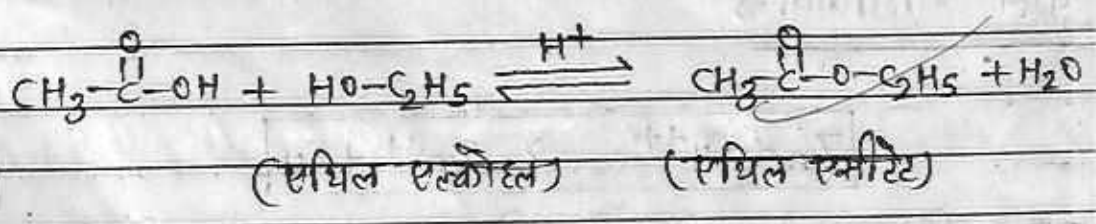 CH₃-C(=O)-OH + HO-C₂H₅ ⇌ (H⁺) CH₃-C(=O)-O-C₂H₅ + H₂O
(एथिल एल्कोहल) (एथिल एसीटेट)